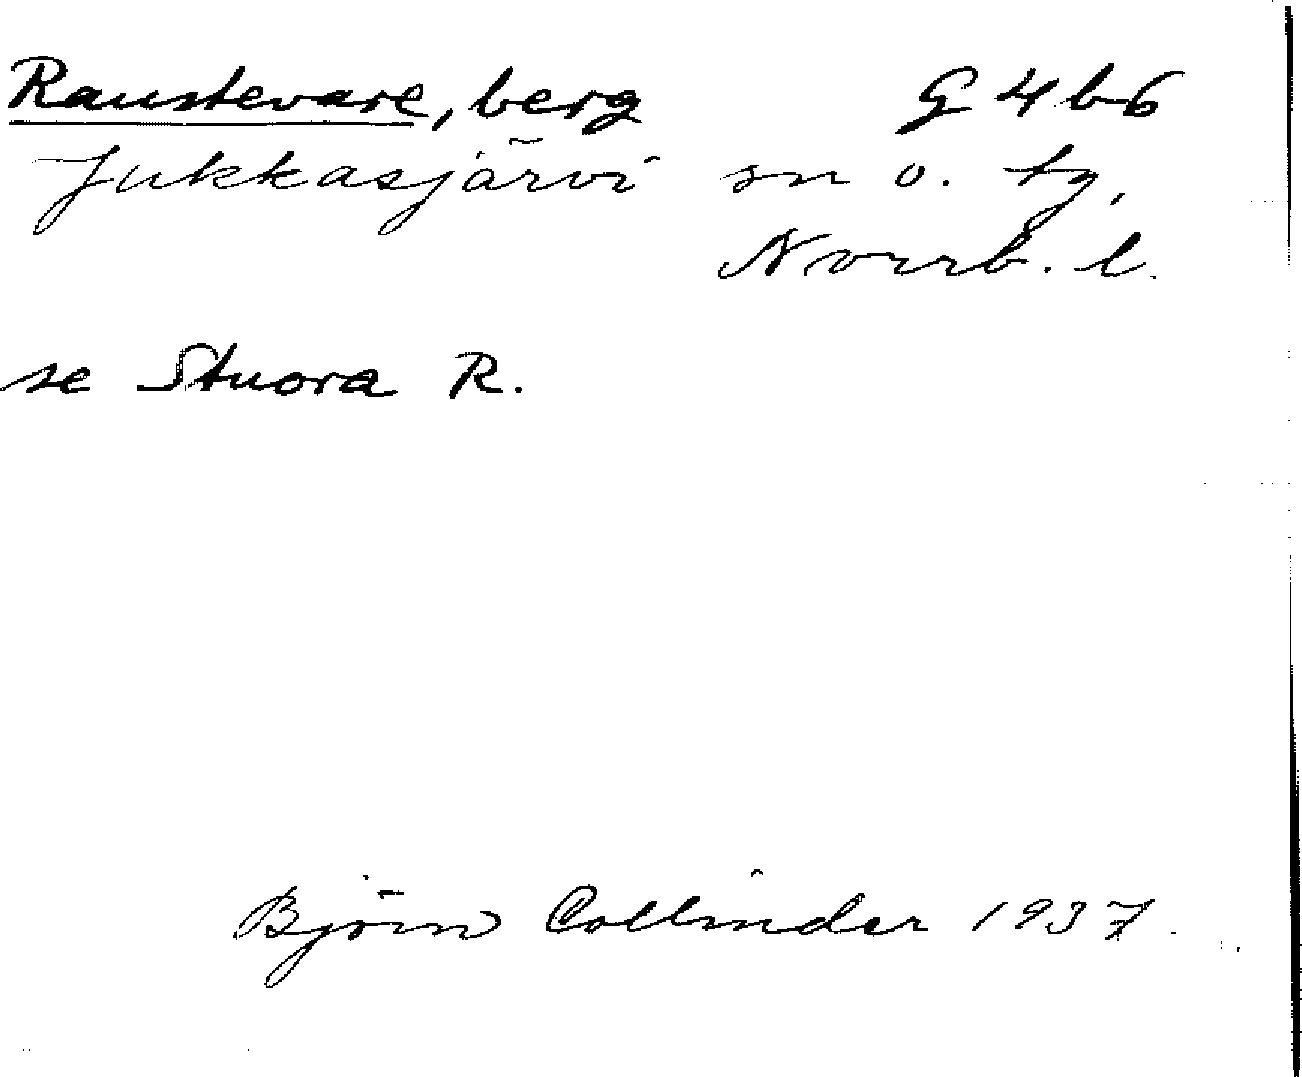 Raustevare, berg G 4 b 6
Jukkasjärvi sn o. tg,
Norrb. l.
se Stuora R.
Björn Collinder 1937.